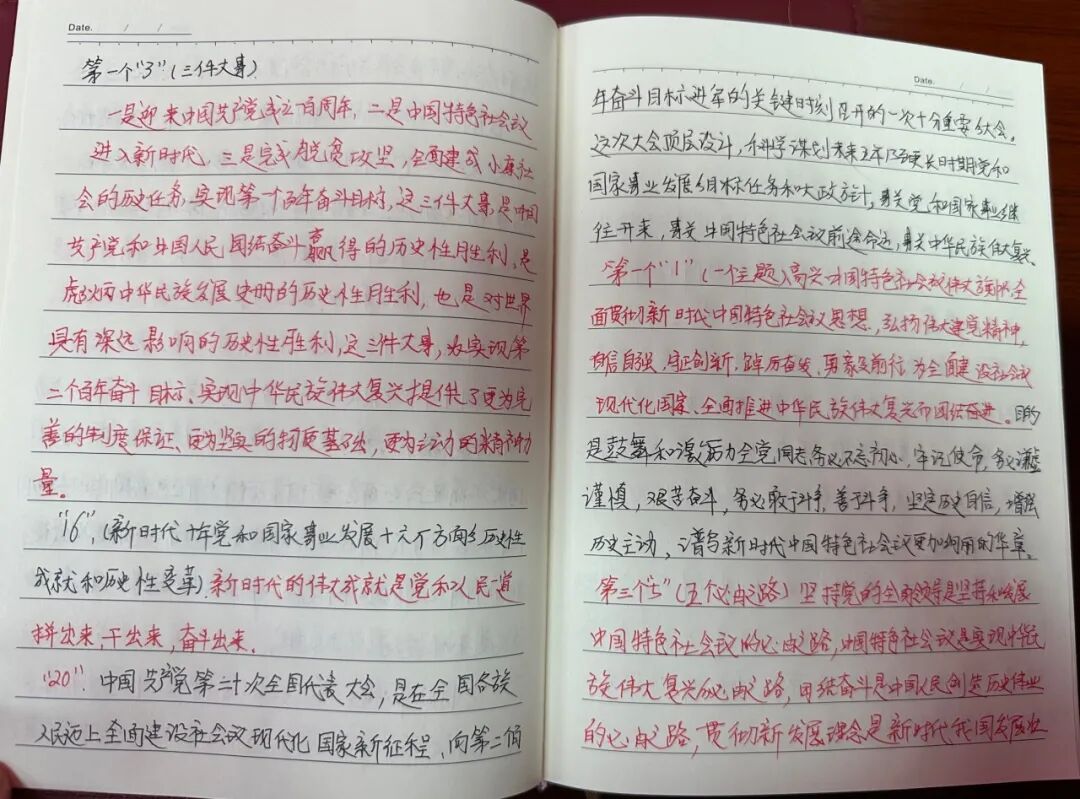 Date. / /
第一个"3"(三件大事)
一是迎来中国共产党成立百周年,二是中国特色社会议
进入新时代,三是完成脱贫攻坚,全面建成小康社
会的历史任务,实现第一个百年奋斗目标,这三件大事,是中国
共产党和中国人民团结奋斗赢得的历史性胜利,是
彪炳中华民族发展史册的历史性胜利,也是对世界
具有深远影响的历史性胜利,这三件大事,为实现第
二个百年奋斗目标、实现中华民族伟大复兴提供了更为完
善的制度保证、更为坚实的物质基础,更为主动的精神力
量。
"16",(新时代十年党和国家事业发展十六个方面的历史性
成就和历史性变革).新时代的伟大成就是党和人民一道
拼出来,干出来,奋斗出来.
"20". 中国共产党第二十次全国代表大会,是在全国各族
人民迈上全面建设社会议现代化国家新征程,向第二个百
Date.
年奋斗目标进军的关键时刻召开的一次十分重要的大会。
这次大会顶层设计,科学谋划未来五年乃至更长时期党和
国家事业发展的目标任务和大政方针,事关党和国家事业继
往开来,事关中国特色社会议前途命运,事关中华民族伟大复兴.
第一个"1"(一个主题)高举中国特色社会议伟大旗帜,全
面贯彻新时代中国特色社会议思想,弘扬伟大建党精神,
自信自强,守正创新,踔厉奋发,勇毅前行,为全面建设社会议
现代化国家、全面推进中华民族伟大复兴而团结奋进。目的
是鼓舞和激励全党同志务必不忘初心、牢记使命,务必谦虚
谨慎,艰苦奋斗,务必敢于斗争,善于斗争,坚定历史自信,增强
历史主动,谱写新时代中国特色社会主义更加绚丽的华章。
第三个"5"(五个必由之路)坚持党的全面领导是坚持和发展
中国特色社会议的必由之路,中国特色社会议是实现中华民
族伟大复兴必由之路,团结奋斗是中国人民创造历史伟业
的必由之路,贯彻新发展理念是新时代我国发展壮